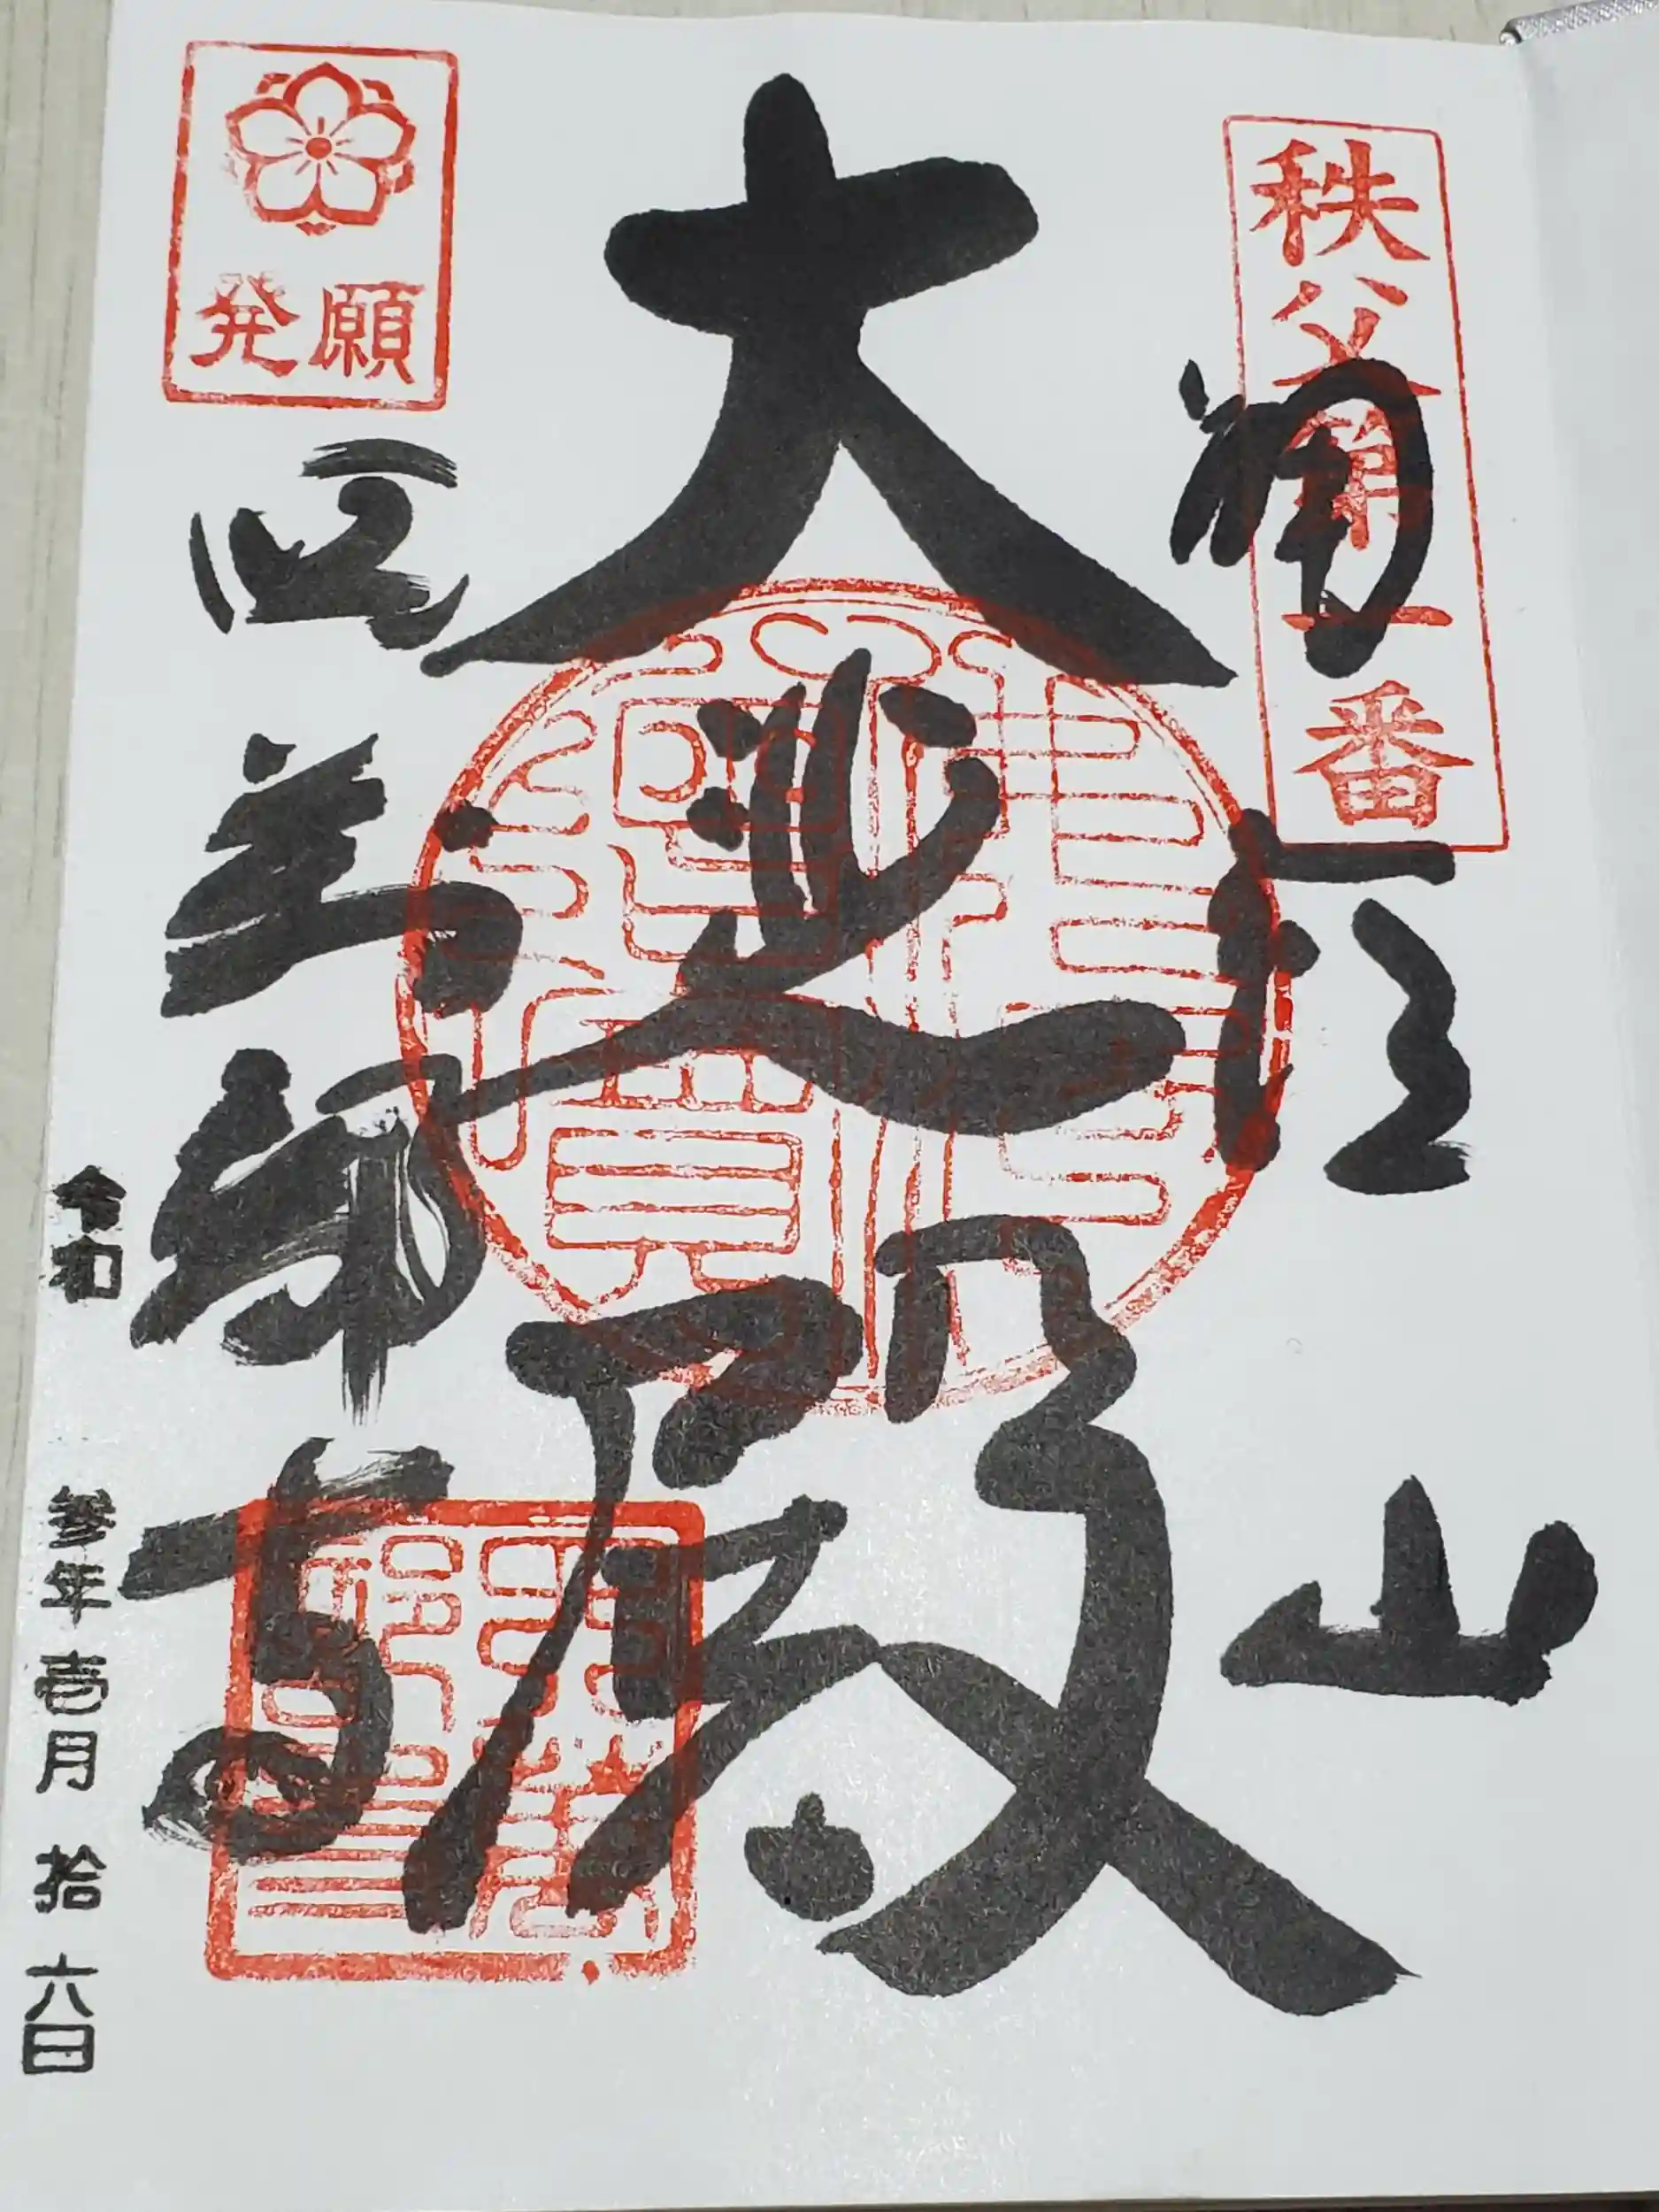 秩父第一番
誦経山
大悲殿
四萬部寺
発願
令和 参年壱月拾六日